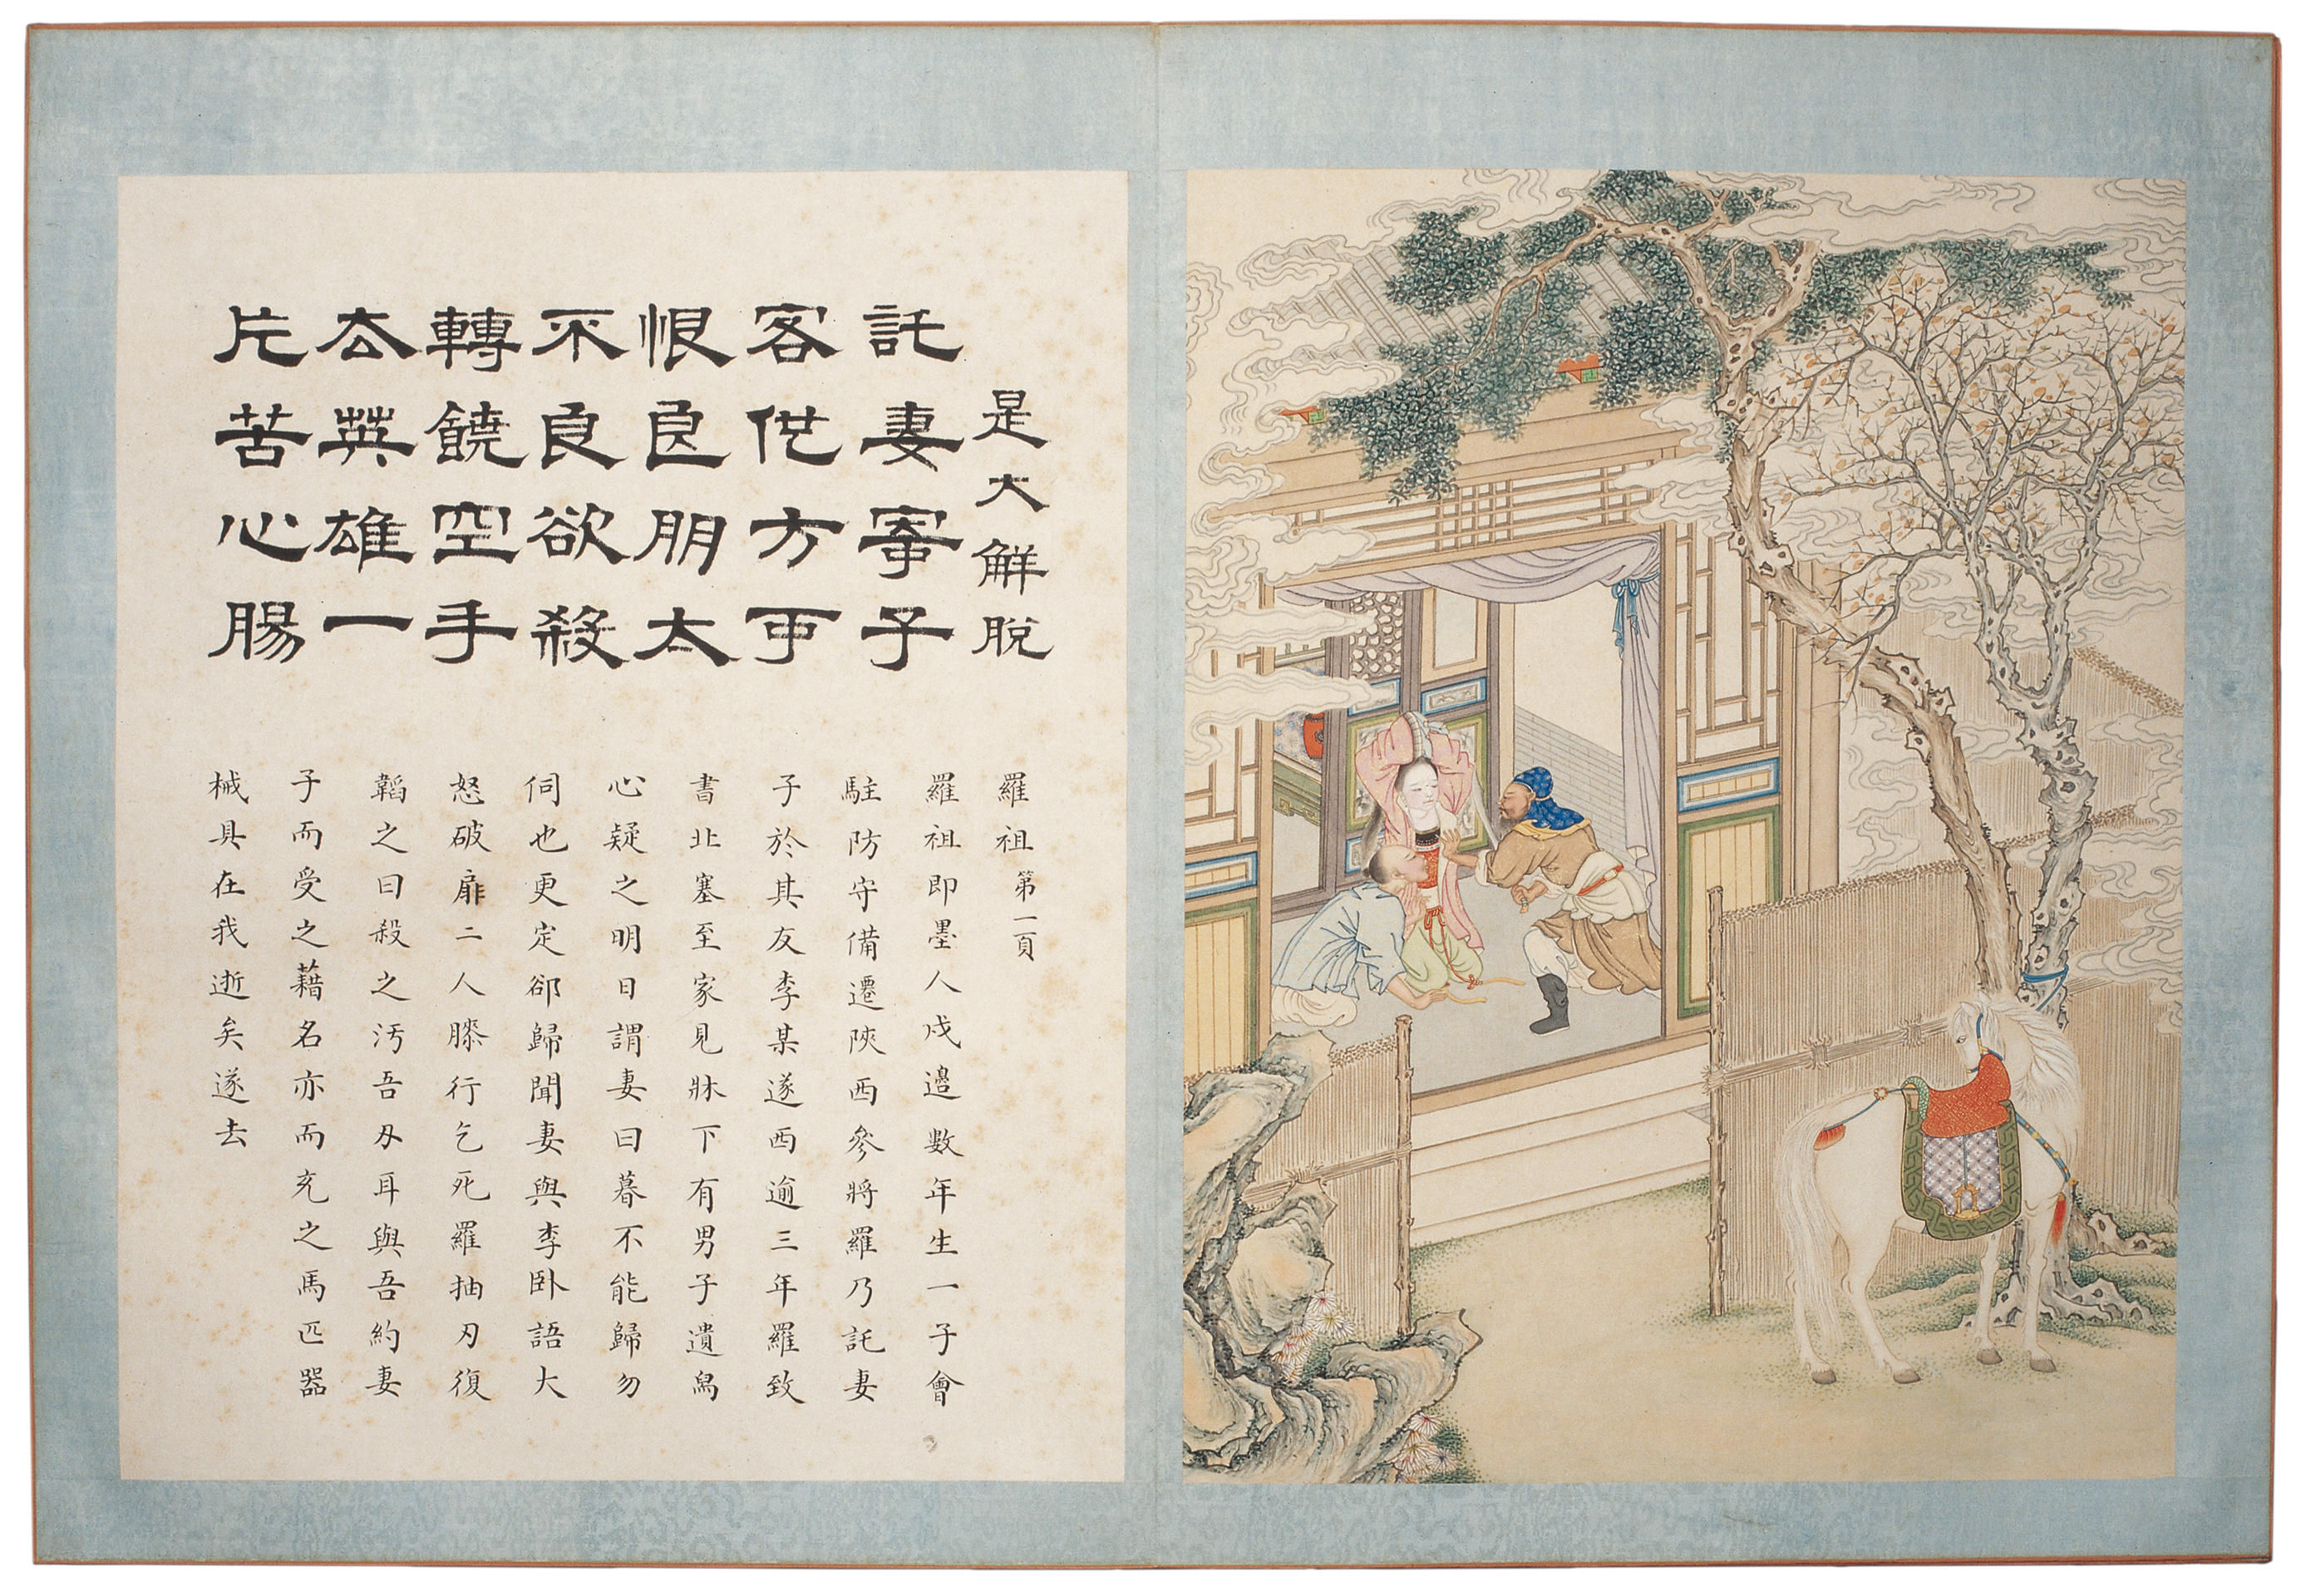 是大解脫
託妻寄子
客他方可
恨良朋太
不良欲殺
轉饒空手
去英雄一
片苦心腸
羅祖 第一頁
羅祖即墨人戍邉數年生一子會
駐防守備遷陝西參將羅乃託妻
子於其友李某遂西逾三年羅致
書北塞至家見牀下有男子遺舄
心疑之明日謂妻曰暮不能歸勿
伺也更定卻歸聞妻與李卧語大
怒破扉二人膝行乞死羅抽刃復
韜之曰殺之汚吾刃耳與吾約妻
子而受之藉名亦而充之馬匹器
械具在我逝矣遂去